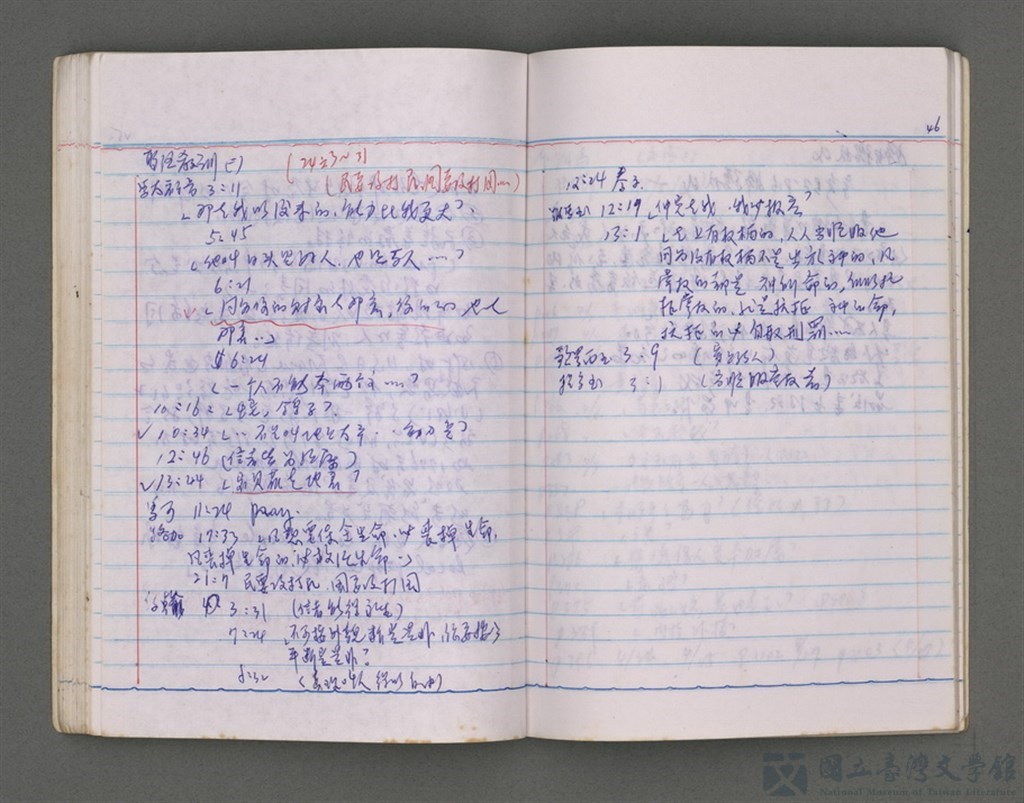 聖經教訓(二) (24:3~31
(民要攻打民,國要攻打國…)
馬太福音 3:11
「那在我以後來的,能力比我更大」
5:45
「他叫日頭照好人,也照歹人…」
6:21
「因為你的財寶在那裏,你的心也在
那裏…」
6:24
「一個人不能事兩個主…」
10:16:
10:34 「…不是叫地上太平‥動刀兵」
12:46
13:24
馬可 11:24 pray.
路加 17:33 「凡想要保全生命,必喪掉生命,
凡喪掉生命的,必救活生命…」
21:7 民要攻打民,國要攻打國
約翰 3:31
7:24 「不可按外貌斷是非,總要按公
平斷是非」
8:32 (真理叫人得以自由)
46
12:24
羅馬書 12:19 「伸冤在我,我必報應」
13:1 「在上有權柄的,人人當順服他
因為沒有權柄不是出於神的,凡
掌權的都是神所命的,所以抗
拒掌權的,就是抗拒神的命,
抗拒的必自取刑罰…
3:9
提多書 3:1 (當順服掌權者)
國立臺灣文學館
National Museum of Taiwan Literature